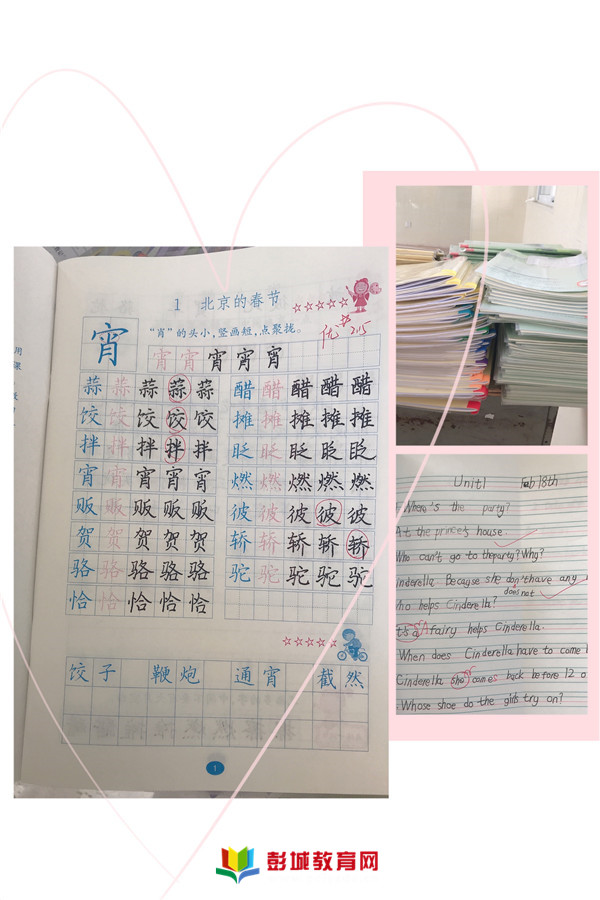 1 北京的春节
“宵”的头小，竖画短，点聚拢。
优 2.15
宵 宵 宵 宵 宵 宵
蒜 蒜 蒜 蒜 蒜 醋 醋 醋 醋 醋
饺 饺 饺 饺 饺 摊 摊 摊 摊 摊
拌 拌 拌 拌 拌 眨 眨 眨 眨 眨
宵 宵 宵 宵 宵 燃 燃 燃 燃 燃
贩 贩 贩 贩 贩 彼 彼 彼 彼 彼
贺 贺 贺 贺 贺 轿 轿 轿 轿 轿
骆 骆 骆 骆 骆 驼 驼 驼 驼 驼
恰 恰 恰 恰 恰
饺子 鞭炮 通宵 截然
1
用
课
Unit1 Feb 18th
Where's the party?
At the prince's house.
Who can't go to the party? Why?
inderella. Because she don't have any
does not
ho helps Cinderella?
t's a A fairy helps Cinderella.
When does Cinderella have to come
Cinderella she comes back before 12 o
Whose shoe do the girls try on?
彭城教育网